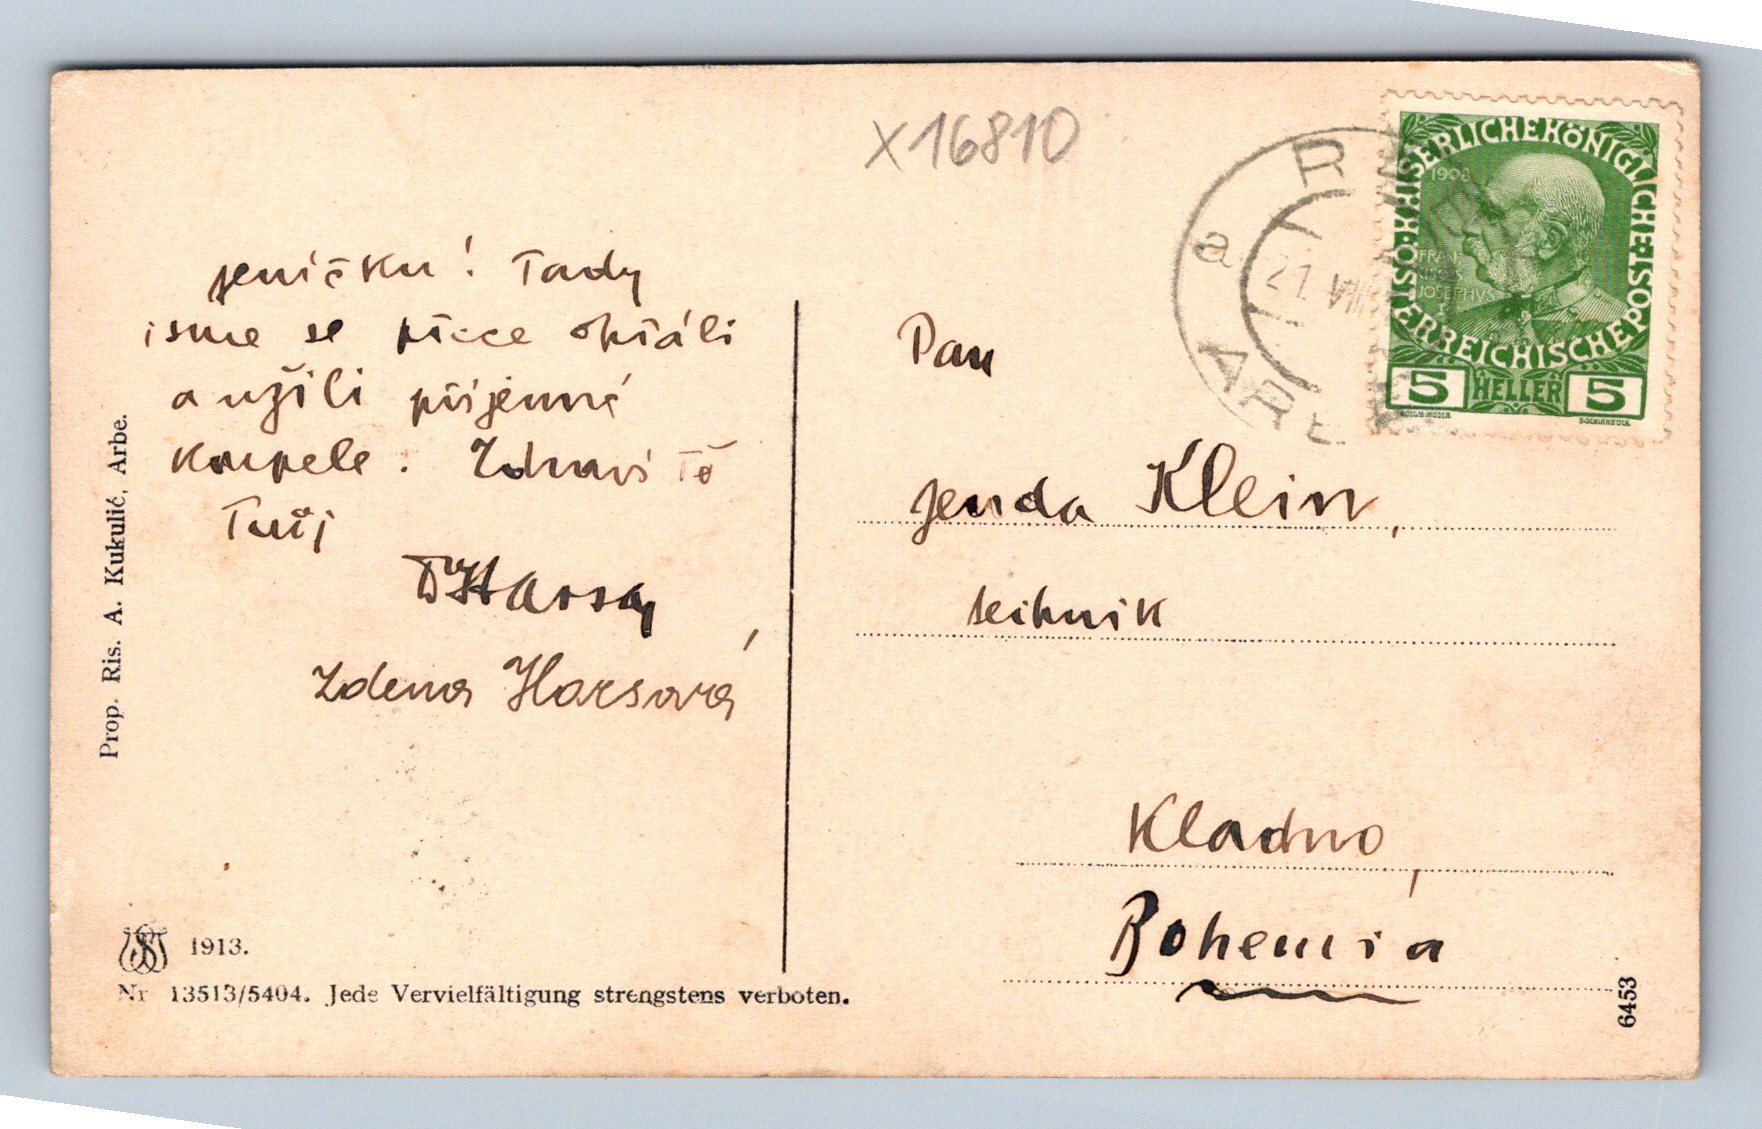 x16810
jeničku! Tady
jsme se přece ohřáli
a užili příjemné
koupele. Zdraví Tě
Tvůj
Zdena Harsová
Pan
Jenda Klein,
technik
Kladno,
Bohemia
Prop. Ris. A. Kukulić, Arbe.
1913.
Nr 13513/5404. Jede Vervielfältigung strengstens verboten.
6453
KAISERLICHE KÖNIGLICHE
ÖSTERREICHISCHE POST
1908
5 HELLER 5
a
21 VIII
ARBE